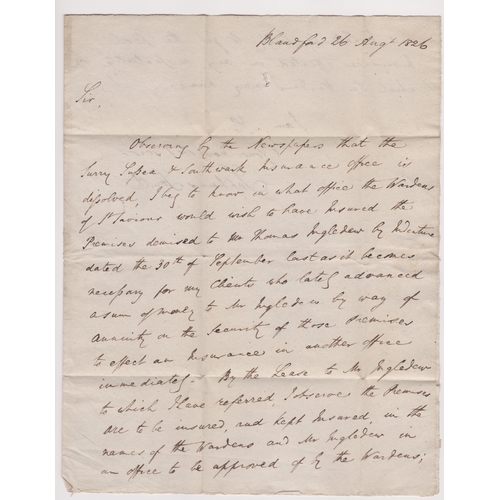 Blandford 26 Augt 1826
Sir,
Observing by the Newspapers that the
Surry Sussex & Southwark Insurance office is
dissolved, I beg to know in what office the Wardens
of St Saviours would wish to have Insured the
Premises demised to Mr Thomas Ingledew by Indenture
dated the 30th of September last as it becomes
necessary for my Clients who lately advanced
a sum of money to Mr Ingledew by way of
annuity on the Security of those Premises
to effect an Insurance in another office
immediately - By the Lease to Mr Ingledew
to which I have referred, I observe the Premises
are to be insured, and kept Insured in the
names of the Wardens and Mr Ingledew in
an office to be approved of by the Wardens;